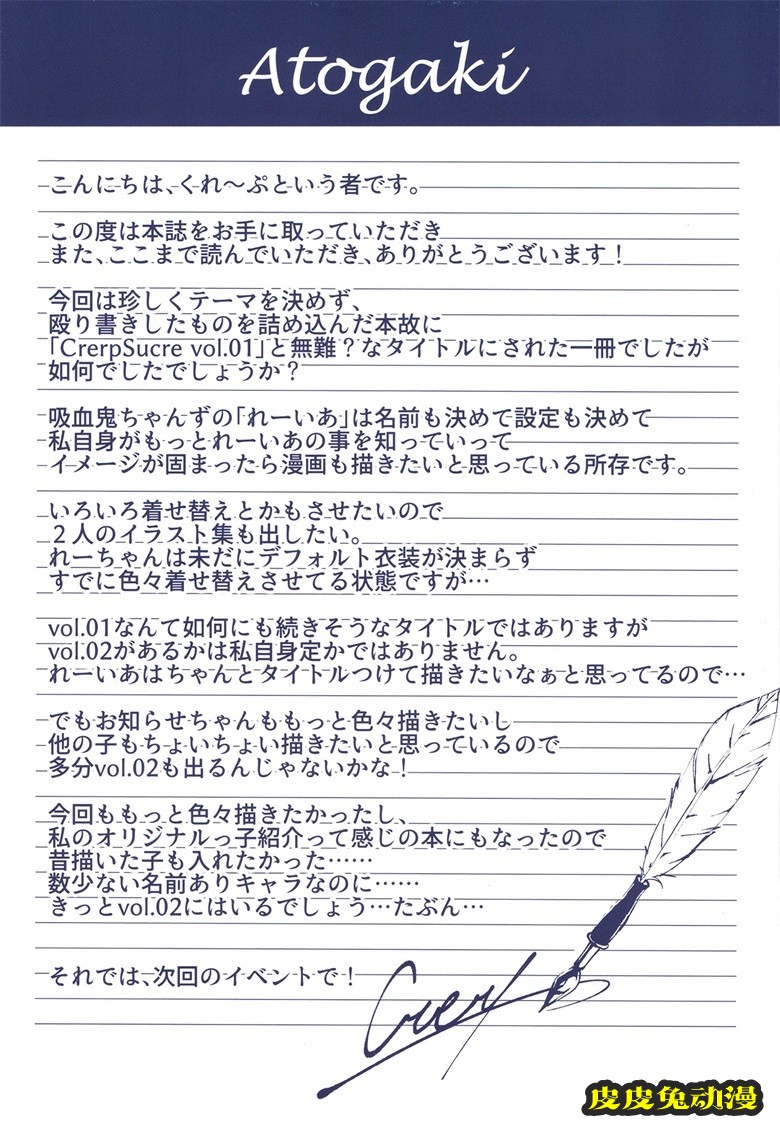 Atogaki
こんにちは、くれ～ぷという者です。
この度は本誌をお手に取っていただき
また、ここまで読んでいただき、ありがとうございます！
今回は珍しくテーマを決めず、
殴り書きしたものを詰め込んだ本故に
「CrerpSucre vol.01」と無難？なタイトルにされた一冊でしたが
如何でしたでしょうか？
吸血鬼ちゃんずの「れーいあ」は名前も決めて設定も決めて
私自身がもっとれーいあの事を知っていって
イメージが固まったら漫画も描きたいと思っている所存です。
いろいろ着せ替えとかもさせたいので
２人のイラスト集も出したい。
れーちゃんは未だにデフォルト衣装が決まらず
すでに色々着せ替えさせてる状態ですが…
vol.01なんて如何にも続きそうなタイトルではありますが
vol.02があるかは私自身定かではありません。
れーいあはちゃんとタイトルつけて描きたいなぁと思ってるので…
でもお知らせちゃんももっと色々描きたいし
他の子もちょいちょい描きたいと思っているので
多分vol.02も出るんじゃないかな！
今回ももっと色々描きたかったし、
私のオリジナルっ子紹介って感じの本にもなったので
昔描いた子も入れたかった……
数少ない名前ありキャラなのに……
きっとvol.02にはいるでしょう…たぶん…
それでは、次回のイベントで！
皮皮兔动漫